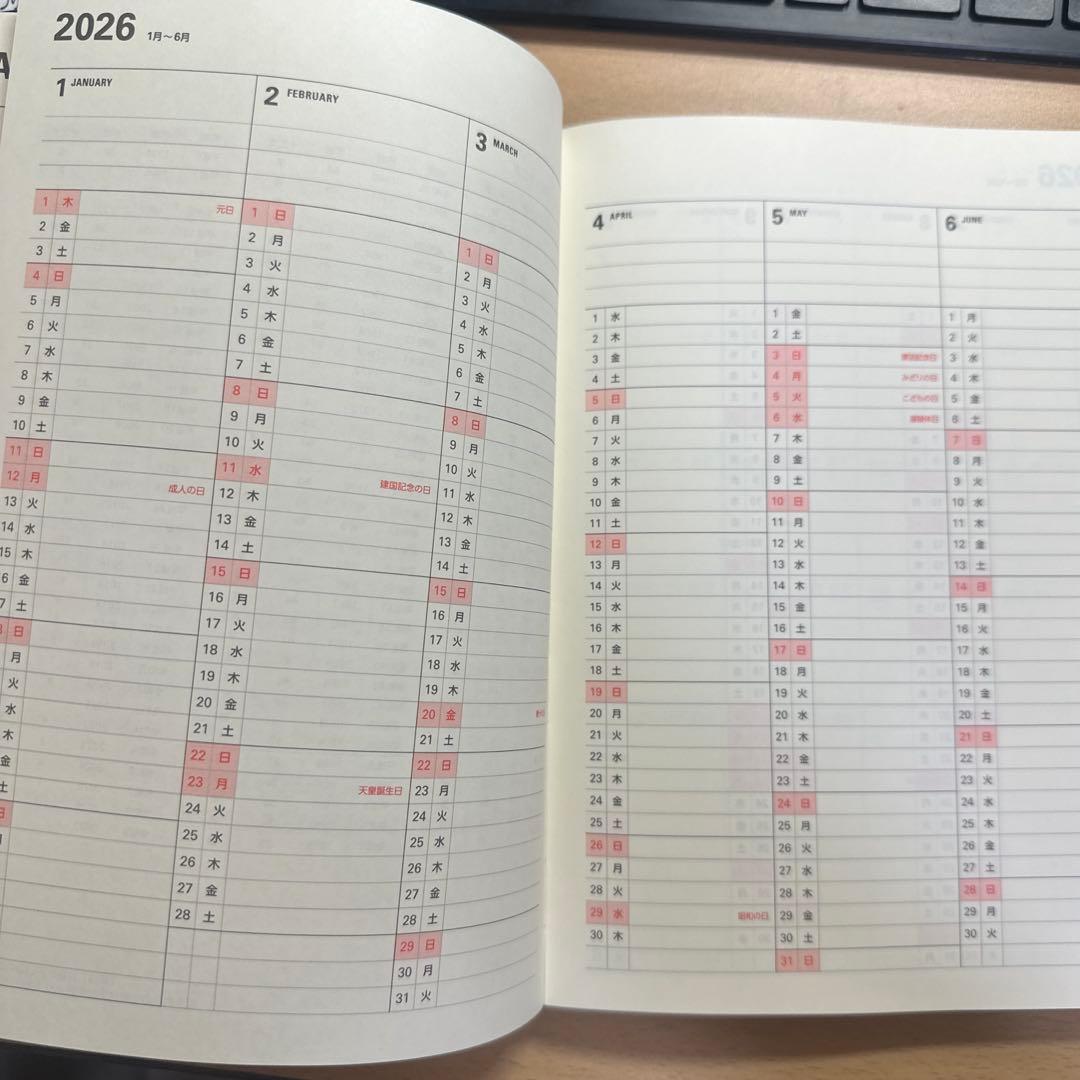 2026 1月～6月
1 JANUARY
1 木 元日
2 金
3 土
4 日
5 月
6 火
7 水
8 木
9 金
10 土
11 日
12 月 成人の日
13 火
14 水
15 木
6 金
7 土
日
月
火
水
木
金
土
日
2 FEBRUARY
1 日
2 月
3 火
4 水
5 木
6 金
7 土
8 日
9 月
10 火
11 水 建国記念の日
12 木
13 金
14 土
15 日
16 月
17 火
18 水
19 木
20 金
21 土
22 日
23 月 天皇誕生日
24 火
25 水
26 木
27 金
28 土
3 MARCH
1 日
2 月
3 火
4 水
5 木
6 金
7 土
8 日
9 月
10 火
11 水
12 木
13 金
14 土
15 日
16 月
17 火
18 水
19 木
20 金
21 土
22 日
23 月
24 火
25 水
26 木
27 金
28 土
29 日
30 月
31 火
4 APRIL
1 水
2 木
3 金
4 土
5 日
6 月
7 火
8 水
9 木
10 金
11 土
12 日
13 月
14 火
15 水
16 木
17 金
18 土
19 日
20 月
21 火
22 水
23 木
24 金
25 土
26 日
27 月
28 火
29 水 昭和の日
30 木
5 MAY
1 金
2 土
3 日 憲法記念日
4 月 みどりの日
5 火 こどもの日
6 水 振替休日
7 木
8 金
9 土
10 日
11 月
12 火
13 水
14 木
15 金
16 土
17 日
18 月
19 火
20 水
21 木
22 金
23 土
24 日
25 月
26 火
27 水
28 木
29 金
30 土
31 日
6 JUNE
1 月
2 火
3 水
4 木
5 金
6 土
7 日
8 月
9 火
10 水
11 木
12 金
13 土
14 日
15 月
16 火
17 水
18 木
19 金
20 土
21 日
22 月
23 火
24 水
25 木
26 金
27 土
28 日
29 月
30 火